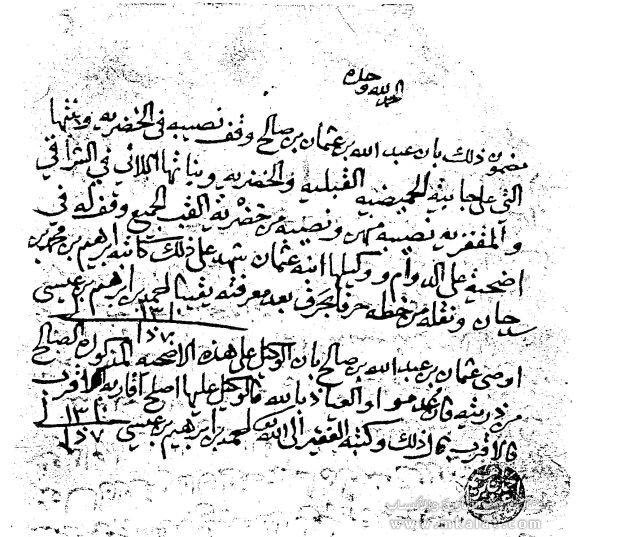 الحمد لله وحده
مضمون ذلك بان عبد الله بن عثمان بن صالح وقف نصيبه في الخضريه وبنتها
التي على جابية الحميضيه القبليه والخضريه وبناتها اللاتي في الشراقي
والمقفزيه نصيبه ونصيبه من خضرية القب الجميع وقف له في
اضحية على الدوام ووكيلها ابنه عثمان شهد على ذلك كاتبه ابرهيم بن محمد بن
سدحان ونقله من خطه حرفا بحرف بعد معرفته يقينا احمد بن ابرهيم بن عيسى
اوصى عثمان بن عبد الله بن صالح بان الوكيل على هذه الاضحية المذكورة الصالح
من ذريته فان عدموا والعياذ بالله فالوكيل عليها اصلح اقاربه الاقرب
فالاقرب قال ذلك وكتبه الفقير الى الله احمد بن ابرهيم بن عيسى ١٣١٠
www.mkalat.com